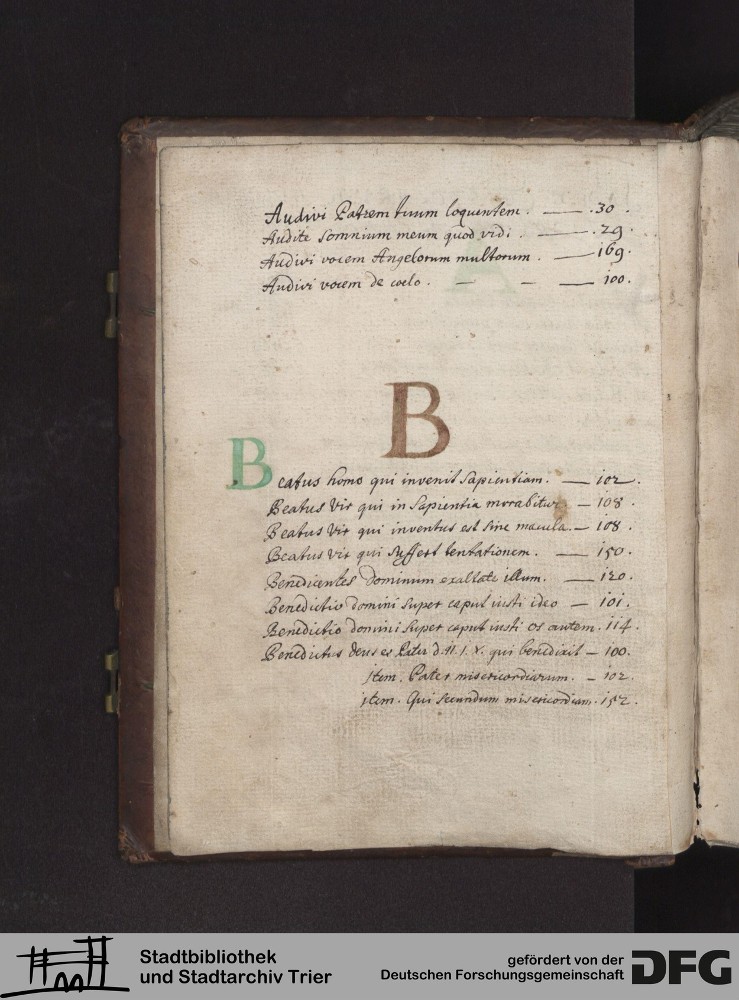 Audivi Patrem tuum loquentem. — .30.
Audite somnium meum quod vidi. — .29.
Audivi vocem Angelorum multorum. — 169.
Audivi vocem de coelo. — — — 100.
B
Beatus homo qui invenit Sapientiam. — 102.
Beatus Vir qui in Sapientia morabitur — 108.
Beatus Vir qui inventus est sine macula. — 108.
Beatus Vir qui suffert tentationem. — 150.
Benedicentes Dominum exaltate illum. — 120.
Benedictio domini super caput iusti ideo — 101.
Benedictio domini super caput iusti os autem. 114.
Benedictus deus es Pater d. N. I. X. qui benedixit — 100.
item. Pater misericordiarum. — 102.
item. Qui secundum misericordiam. 152.
Stadtbibliothek
und Stadtarchiv Trier
gefördert von der
Deutschen Forschungsgemeinschaft
DFG